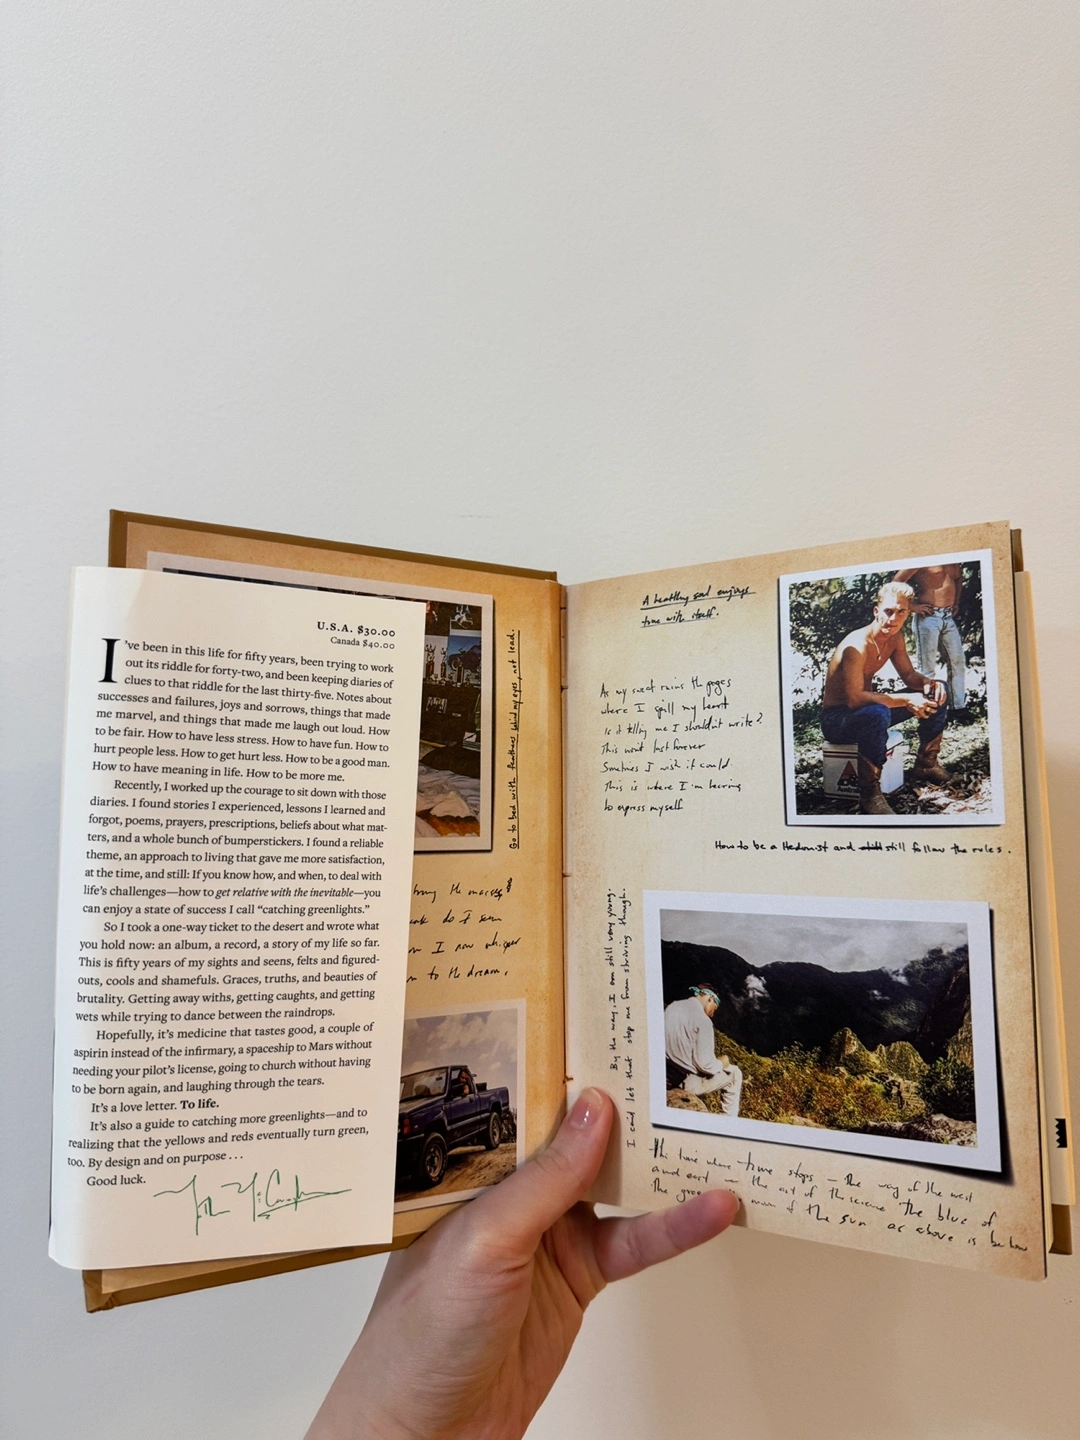 U.S.A. $30.00
Canada $40.00
I've been in this life for fifty years, been trying to work
out its riddle for forty-two, and been keeping diaries of
clues to that riddle for the last thirty-five. Notes about
successes and failures, joys and sorrows, things that made
me marvel, and things that made me laugh out loud. How
to be fair. How to have less stress. How to have fun. How to
hurt people less. How to get hurt less. How to be a good man.
How to have meaning in life. How to be more me.
Recently, I worked up the courage to sit down with those
diaries. I found stories I experienced, lessons I learned and
forgot, poems, prayers, prescriptions, beliefs about what mat-
ters, and a whole bunch of bumperstickers. I found a reliable
theme, an approach to living that gave me more satisfaction,
at the time, and still: If you know how, and when, to deal with
life's challenges—how to get relative with the inevitable—you
can enjoy a state of success I call "catching greenlights."
So I took a one-way ticket to the desert and wrote what
you hold now: an album, a record, a story of my life so far.
This is fifty years of my sights and seens, felts and figured-
outs, cools and shamefuls. Graces, truths, and beauties of
brutality. Getting away withs, getting caughts, and getting
wets while trying to dance between the raindrops.
Hopefully, it's medicine that tastes good, a couple of
aspirin instead of the infirmary, a spaceship to Mars without
needing your pilot's license, going to church without having
to be born again, and laughing through the tears.
It's a love letter. To life.
It's also a guide to catching more greenlights—and to
realizing that the yellows and reds eventually turn green,
too. By design and on purpose . . .
Good luck.
Go to bed with Panthers behind my eyes, not lead.
the masses
do I seem
I now whisper
to the dream,
A healthy soul enjoys
time with itself.
As my sweat ruins the pages
where I spill my heart
Is it telling me I shouldn't write?
This won't last forever
Sometimes I wish it could.
This is where I'm learning
to express myself
How to be a Hedonist and still follow the rules.
By the way, I am still very young.
I can't let that stop me from striving though.
time where time stops – the way of the west
and east – the art of the the blue of
the man of the sun as above is below